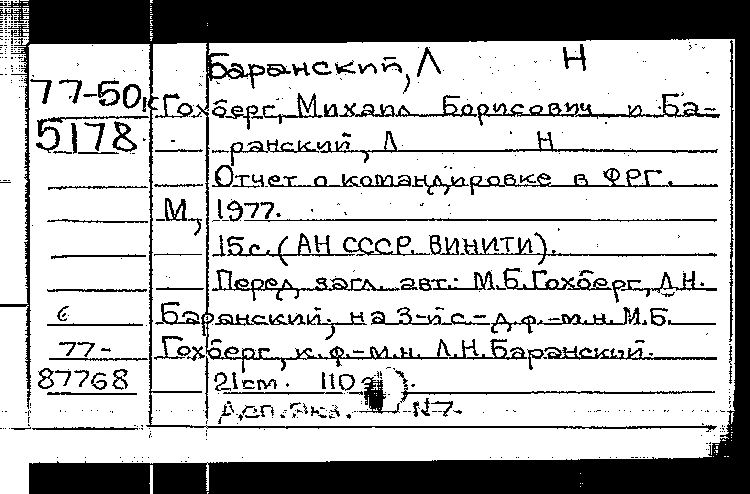 Баранский, Л Н
77-50к Гохберг, Михаил Борисович и Ба-
5178 ранский, Л Н
Отчет о командировке в ФРГ.
М, 1977.
15 с. (АН СССР. ВИНИТИ).
Перед загл. авт.: М.Б.Гохберг, Л.Н.
Баранский; на 3-й с.-д.ф.-м.н. М.Б.
77- Гохберг, к.ф.-м.н. Л.Н.Баранский.
87768 21см. 110
Деп. экз. N7.